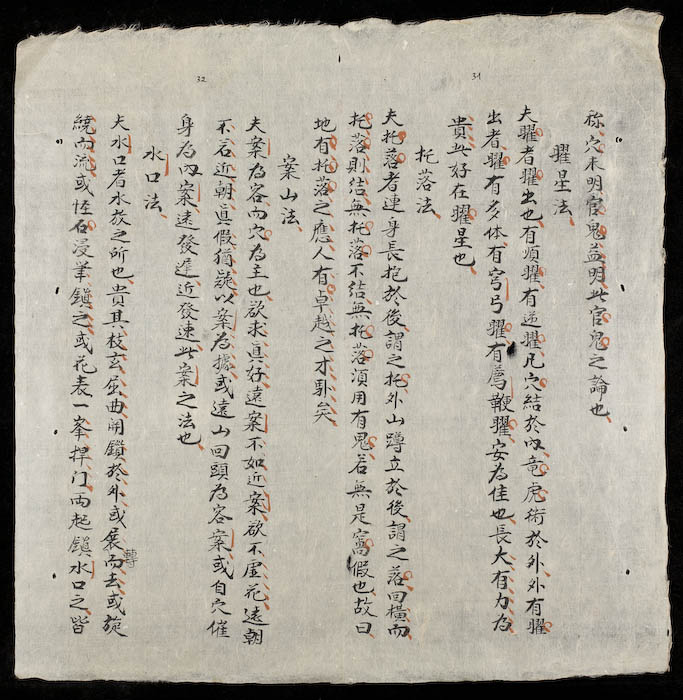 31
祢穴未明官鬼益明此官鬼之論也
曜星法
夫曜者曜出也有順曜有逆曜凡穴結於內竜虎術於外外有曜
出者曜有多体有穹弓曜有鷹鞭曜安為佳也長大有力為
貴此好在曜星也
托落法
夫托落者連身長抱於後謂之托外山蹲立於後謂之落回橫而
托落則結無托落不結無托落須用有鬼若無是窩假也故曰
地有托落之應人有卓越之才卧矣
32
案山法
夫案為客而穴為主也欲求真好遠案不如近案欲不虛花遠朝
不若近朝眞假猶疑以案為據或遠山回頭為客案或自穴催
身為內案遠發遲近發速此案之法也
水口法
夫水口者水放之所也貴其枝玄屈曲関鎖於外或展而去或旋
轉
繞而流或怪石浸筆鎮之或花表一峯捍门両起鎮水口之皆